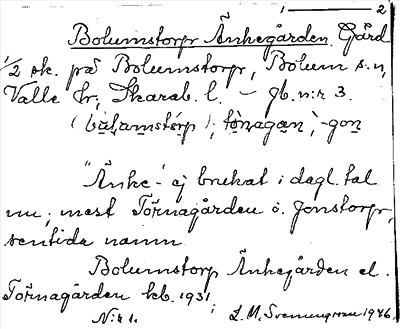 1 — 2
Bolumstorp Änkegården. Gård
1/2 sk. på Bolumstorp, Bolum s:n,
Valle hr, Skarab. l. – jb. n:r 3.
"Änke-" ej brukat i dagl. tal
nu; mest Törnagården o. Jonstorp,
sentida namn
Bolumstorp Änkegården el.
Törnagården kb. 1931
N:r 1. L. M. Svenungsson 1946.